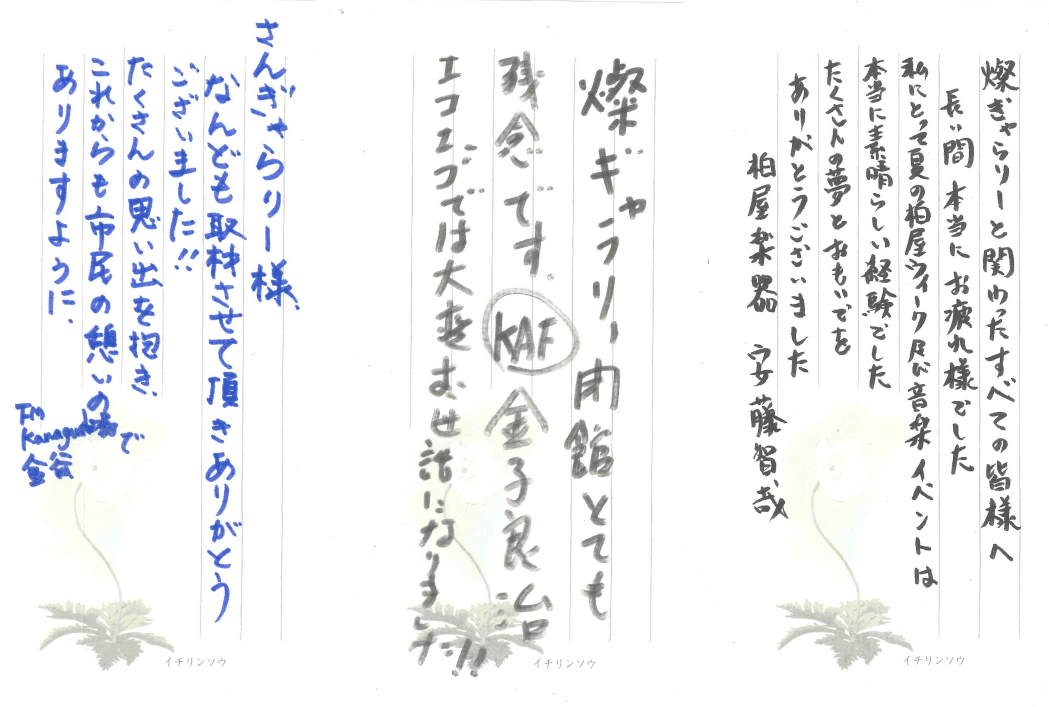 さんぎゃらりー様、
なんども取材させて頂きありがとう
ございました!!
たくさんの思い出を抱き、
これからも市民の憩いの場で
ありますように、
FM
金谷
イチリンソウ
燦ギャラリー閉館とても
残念です。KAF金子良治
エコエコでは大変お世話になりました!!
イチリンソウ
燦ぎゃらりーと関わったすべての皆様へ
長い間 本当にお疲れ様でした
私にとって夏の柏屋ウィーク及び音楽イベントは
本当に素晴らしい経験でした
たくさんの夢とおもいでを
ありがとうございました
柏屋楽器 安藤智哉
イチリンソウ